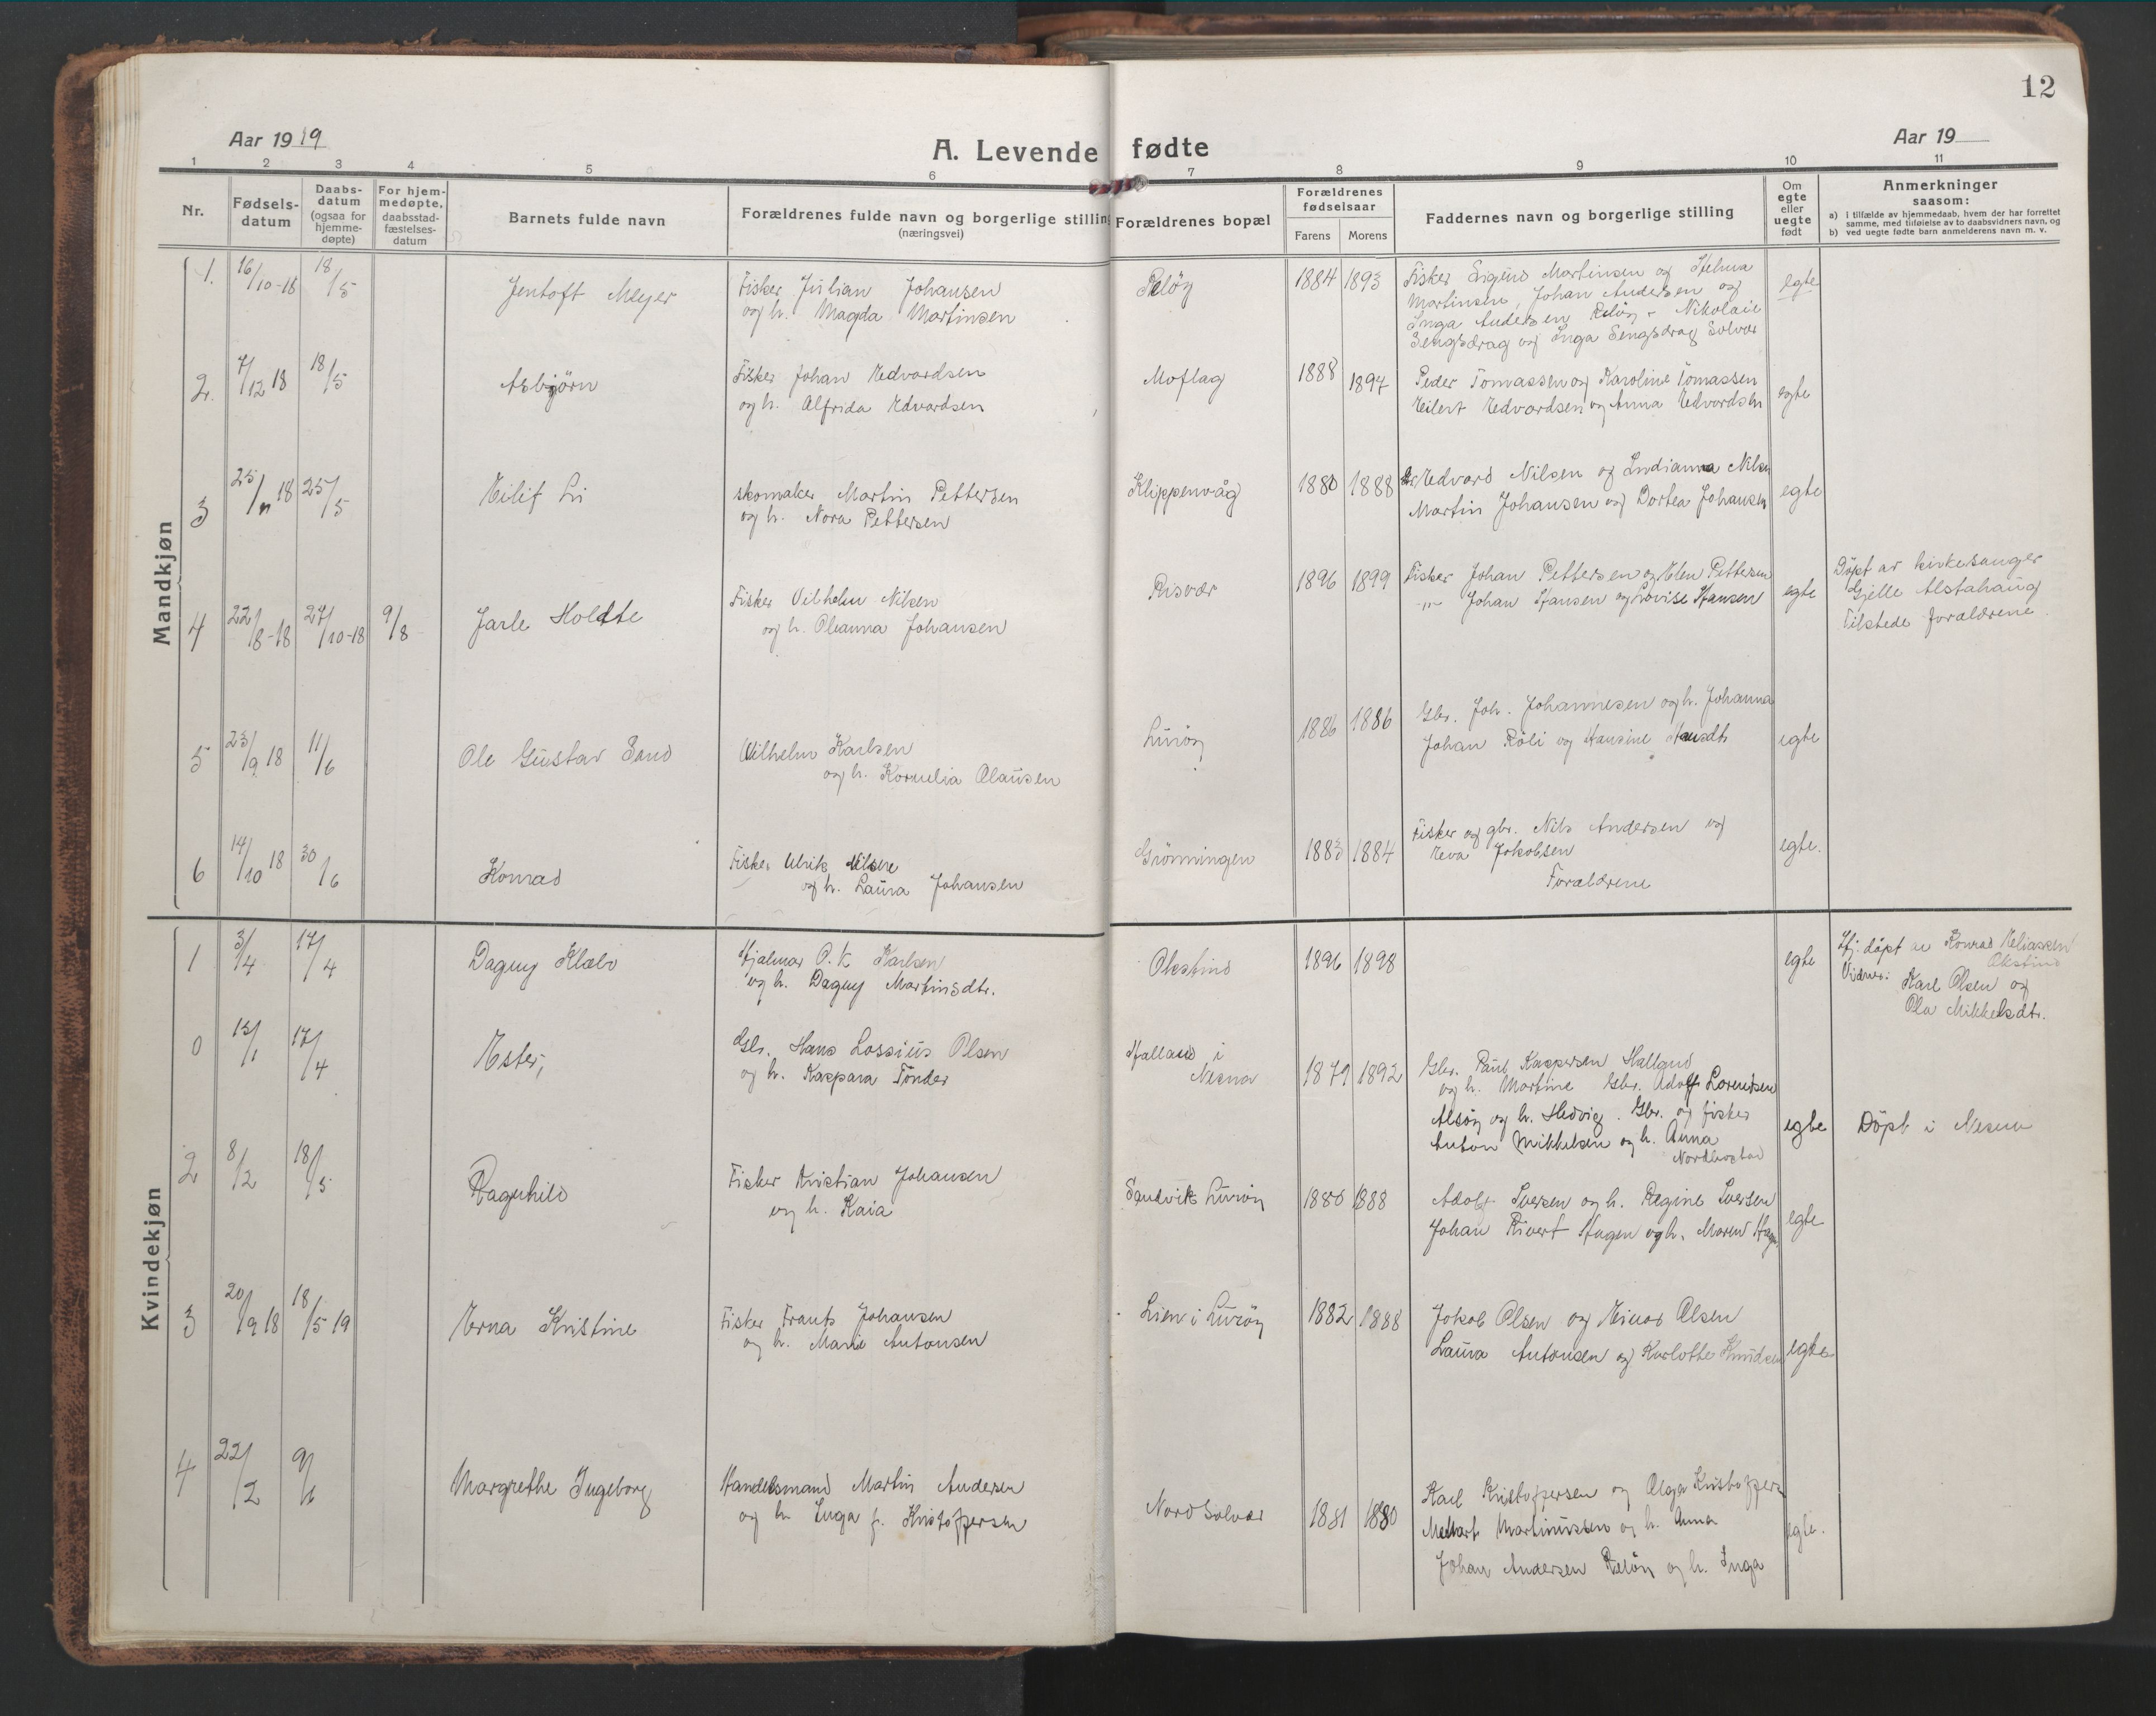 12
Aar 1919
A. Levende fødte
Aar 19
1 2 3 4 5 6 7 8 9 10 11
Nr.
Fødsels-
datum
Daabs-
datum
(ogsaa for
hjemme-
døpte)
For hjem-
medøpte,
daabsstad-
fæstelses-
datum
Barnets fulde navn
Forældrenes fulde navn og borgerlige stilling
(næringsvei)
Forældrenes bopæl
Forældrenes
fødselsaar
Farens Morens
Faddernes navn og borgerlige stilling
Om
egte
eller
uegte
født
Anmerkninger
saasom:
a) i tilfælde av hjemmedaab, hvem der har forrettet
samme, med tilføielse av to daabsvidners navn, og
b) ved uegte fødte barn anmelderens navn m. v.
Mandkjøn
1. 16/10-18 18/5 Jentoft Meyer
Fisker Julian Johansen
og h. Magda Martinsen
Reløy 1884 1893
Fisker Sigurd Martinsen og
Martinsen, Johan Andersen og
Inga Andersen Reløy - Nikolai
Sengsdrag og Inga Sengsdrag Solvær
egte
2. 7/12 18 18/5 Asbjörn
Fisker Johan Edvardsen
og h. Alfrida Edvardsen
Moflag 1888 1897
Peder Tomassen og Karoline Tomassen
Eilert Edvardsen og Anna Edvardsen
egte
3 25/11 18 25/5 Eilif Li
skomaker Martin Pettersen
og h. Nora Pettersen
Klippenvåg 1880 1888
Edvard Nilsen og Indianna Nilsen
Martin Johansen og Dortea Johansen
egte
4 22/8-18 27/10-18 9/8 Jarle Holdte
Fisker Vilhelm Nilsen
og h. Oleanna Johansen
Risvær 1896 1899
Fisker Johan Pettersen og Elen Pettersen
-"- Johan Hansen og Lovise Hansen
egte
Döpt av kirkesanger
Gjelle Alstahaug
Tilstede foraldrene.
5 23/9 18 11/6 Ole Gustav Sand
Vilhelm Karlsen
og h. Kornelia Olausen
Luröy 1886 1886
Gbr. Joh. Johannesen og h. Johanna
Johan Röli og Hansine
egte
6 14/10 18 30/6 Konrad
Fisker Ulrik Nilsen
og h. Laura Johansen
Grönningen 1883 1884
Fisker og gbr. Nils Andersen og
Eeva Jakobsen
Foraldrene
egte.
Kvindekjøn
1 3/4 17/4 Dagny Klæbo
Hjalmar O. K Karlsen
og h. Dagny Martinsdtr.
Okstind 1896 1898
egte
Hj. döpt av Konrad Eliassen
Okstind
Vidner: Karl Olsen og
Ola Mikkelsdtr.
0 13/1 17/4 Ester,
Gbr. Hans Lossius Olsen
og h. Kaspara Tönder
Halland i
Nesna
1879 1892
Gbr. Paul Kaspersen Halland
og h. Martine Gbr. Adolf Lorentsen
Alsöy og h. Hedvig. Gbr. og fisker
Anton Mikkelsen og h. Anna
egte
Döpt i Nesna
2 8/2 18/5 Ragnhild
Fisker Kristian Johansen
og h. Kaia
Sandvik Luröy 1880 1888
Adolf Iversen og h. Regine Iversen
Johan Rivert Hagen og h. Maren Hagen
egte
3 20/9 18 18/5 19 Erna Kristine
Fisker Frants Johansen
og h. Marie Antonsen
Lien i Luröy 1882 1888
Jakob Olsen og Einar Olsen
Laura Antonsen og Karlotte Knudsen
egte
4 22/2 9/6 Margrethe Ingeborg
Handelsmand Martin Andersen
og h Inga f. Kristoffersen
Nord Solvær 1881 1880
Karl Kristoffersen og Olga Kristoffers
Martinussen og h. Anna
Johan Andersen Reløy og h. Inga
egte.